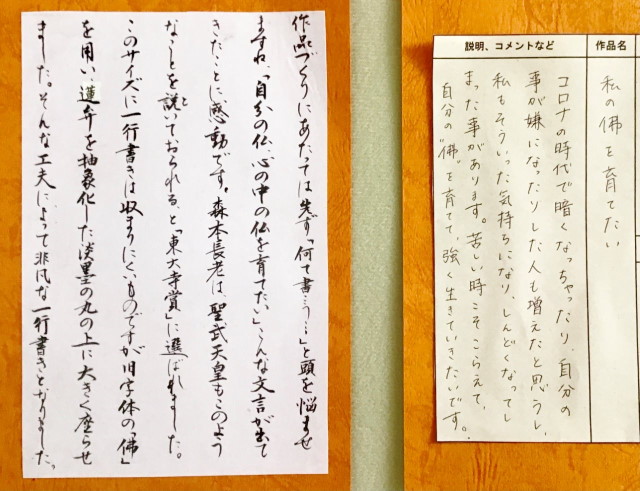 作品づくりにあたっては先ず「何て書こう…」と頭を悩ませ
ますね。「自分の仏、心の中の仏を育てたい」、こんな文言が出て
きたことに感動です。森本長老は、聖武天皇もこのよう
なことを説いておられる、と「東大寺賞」に選ばれました。
と
このサイズに一行書きは収まりにくいものですが旧字体の「佛」
を用い、蓮弁を抽象化した淡墨の丸の上に大きく座らせ
ました。そんな工夫によって非凡な一行書きとなりました。
作品名
私の佛を育てたい
説明、コメントなど
コロナの時代で暗くなっちゃったり、自分の
事が嫌になったりした人も増えたと思うし、
私もそういった気持ちになり、しんどくなってし
まった事があります。苦しい時こそこらえて、
自分の"佛"を育てて、強く生きていきたいです。